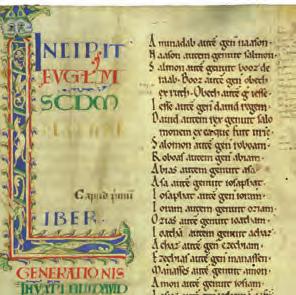 INCIPIT
EUGLM
SCDM
Capitł primū
LIBER
GENERATIONIS
Aminadab autē gen̄ naason.
Naason autem genuit salmon.
Salmon autē genuit booz de
raab. Booz autē gen̄ obeth
ex ruth. Obeth autē g̅ iesse.
Iesse autē gen̄ dauid regem.
Dauid autem rex genuit salo
monem ex eaque fuit urie.
Salomon autē gen̄ roboam.
Roboas autem gen̄ abiam.
Abias autem genuit asa
Asa autē genuit iosaphat.
Iosaphat autē gen̄ ioram.
Ioram autem genuit oziam.
Ozias autē genuit ioatham.
Ioathā autem genuit achaz
Achaz autē gen̄ ezechiam.
Ezechias autē gen̄ manassen.
Manasses autē genuit amon.
Amon autē genuit iosiam.